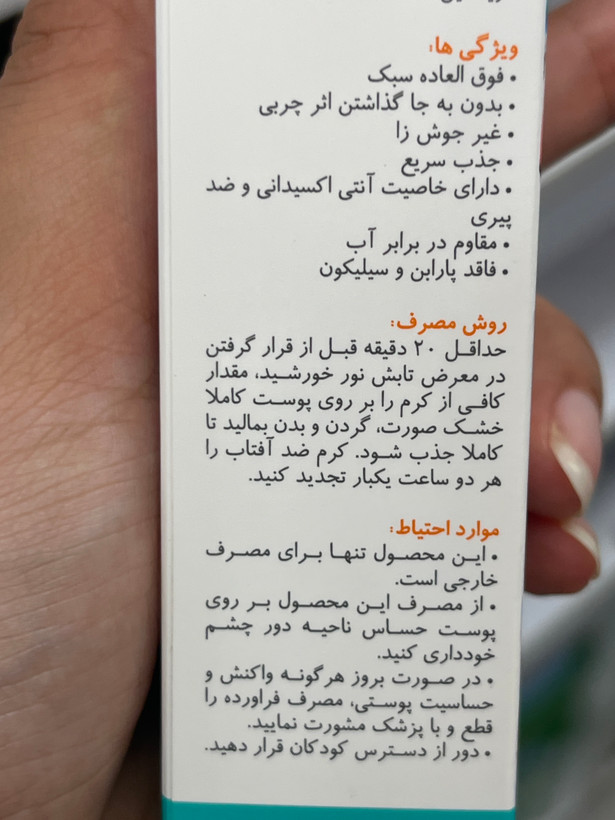 ویژگی ها:
• فوق العاده سبک
• بدون به جا گذاشتن اثر چربی
• غیر جوش زا
• جذب سریع
• دارای خاصیت آنتی اکسیدانی و ضد
پیری
• مقاوم در برابر آب
• فاقد پارابن و سیلیکون
روش مصرف:
حداقل ۲۰ دقیقه قبل از قرار گرفتن
در معرض تابش نور خورشید، مقدار
کافی از کرم را بر روی پوست کاملا
خشک صورت، گردن و بدن بمالید تا
کاملا جذب شود. کرم ضد آفتاب را
هر دو ساعت یکبار تجدید کنید.
موارد احتیاط:
• این محصول تنها برای مصرف
خارجی است.
• از مصرف این محصول بر روی
پوست حساس ناحیه دور چشم
خودداری کنید.
• در صورت بروز هرگونه واکنش و
حساسیت پوستی، مصرف فراورده را
قطع و با پزشک مشورت نمایید.
• دور از دسترس کودکان قرار دهید.